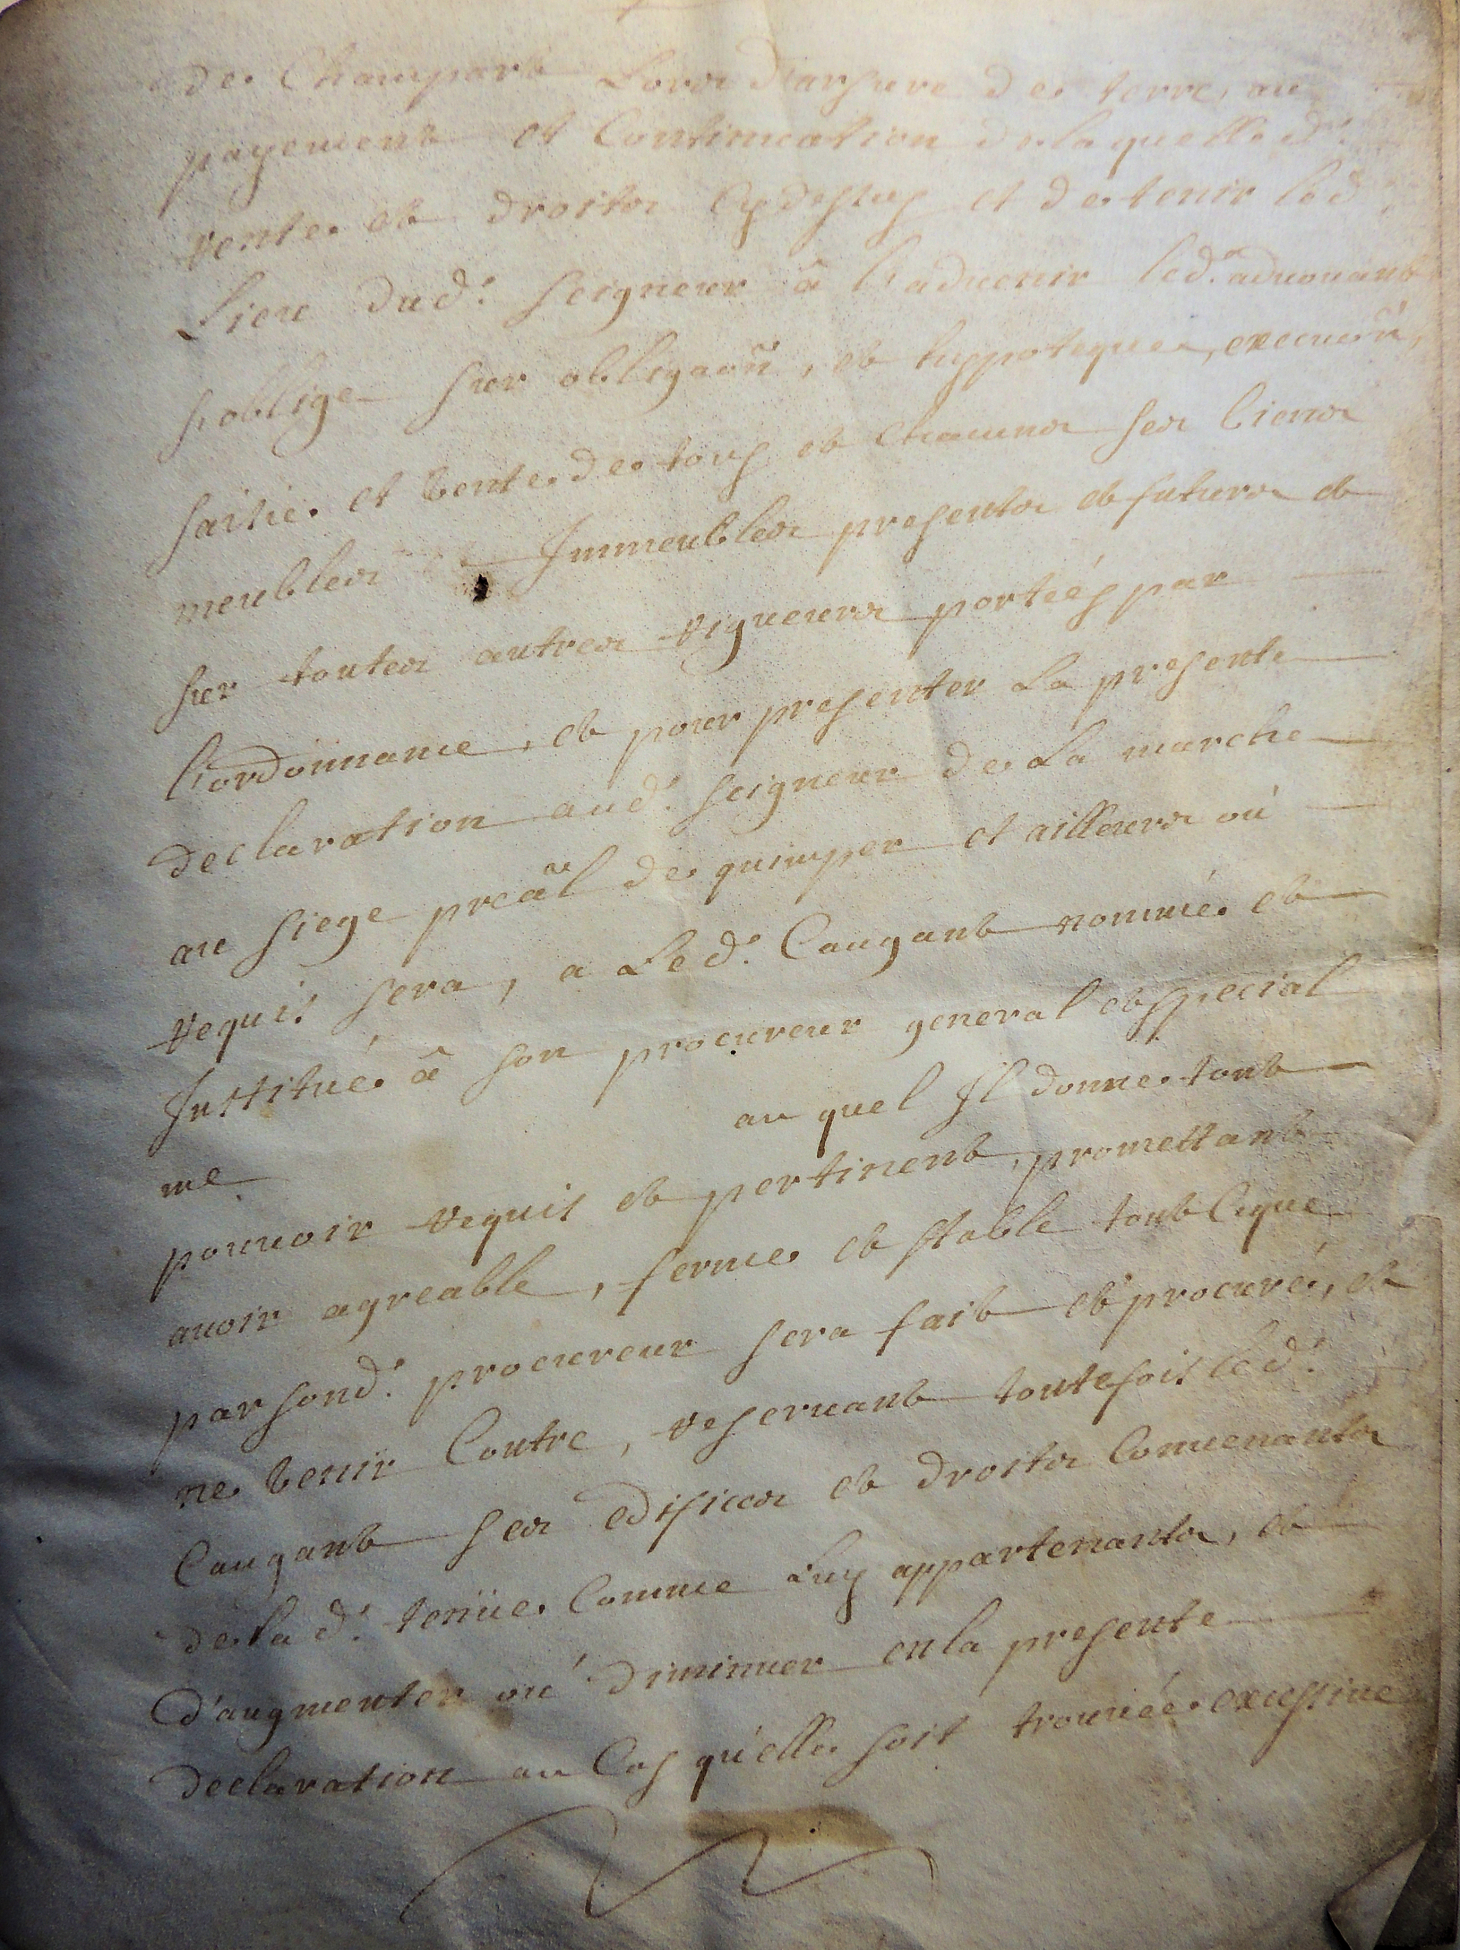 de Champart Lors d'arsure de terre, au
payement et Continuation de laquelle d.
rente et droits Cy dessus et de tenir led
Lieu dud. seigneur â l'aduenir led. aduouant
s'oblige sur obligaōn, et hyppoteque, execuōn,
saisie et vente de tous et Chacuns ses biens
meubles Immeubles presents et futurs et
sur toutes autres rigueurs portéés par
l'ordonnance, et pour presenter La presente
declaration aud. seigneur de La marche
au siege preāl de quimper et ailleurs où
requis sera, a Led. Caugant nommé et
Institué â son procureur general et special
me au quel Il donne tout
pouuoir requis et pertinent, promettant
auoir agreable, ferme et stable tout Ceque
par sond. procureur sera fait et procuré, et
ne venir Contre, reseruant toutefois led.
Caugant ses edifices et droits Conuenants
de lad. tenüe Comme Luy appartenants, et
d'augmenter oú diminuer en la presente
declaration au Cas qu'elle soit trouuéé excessiue